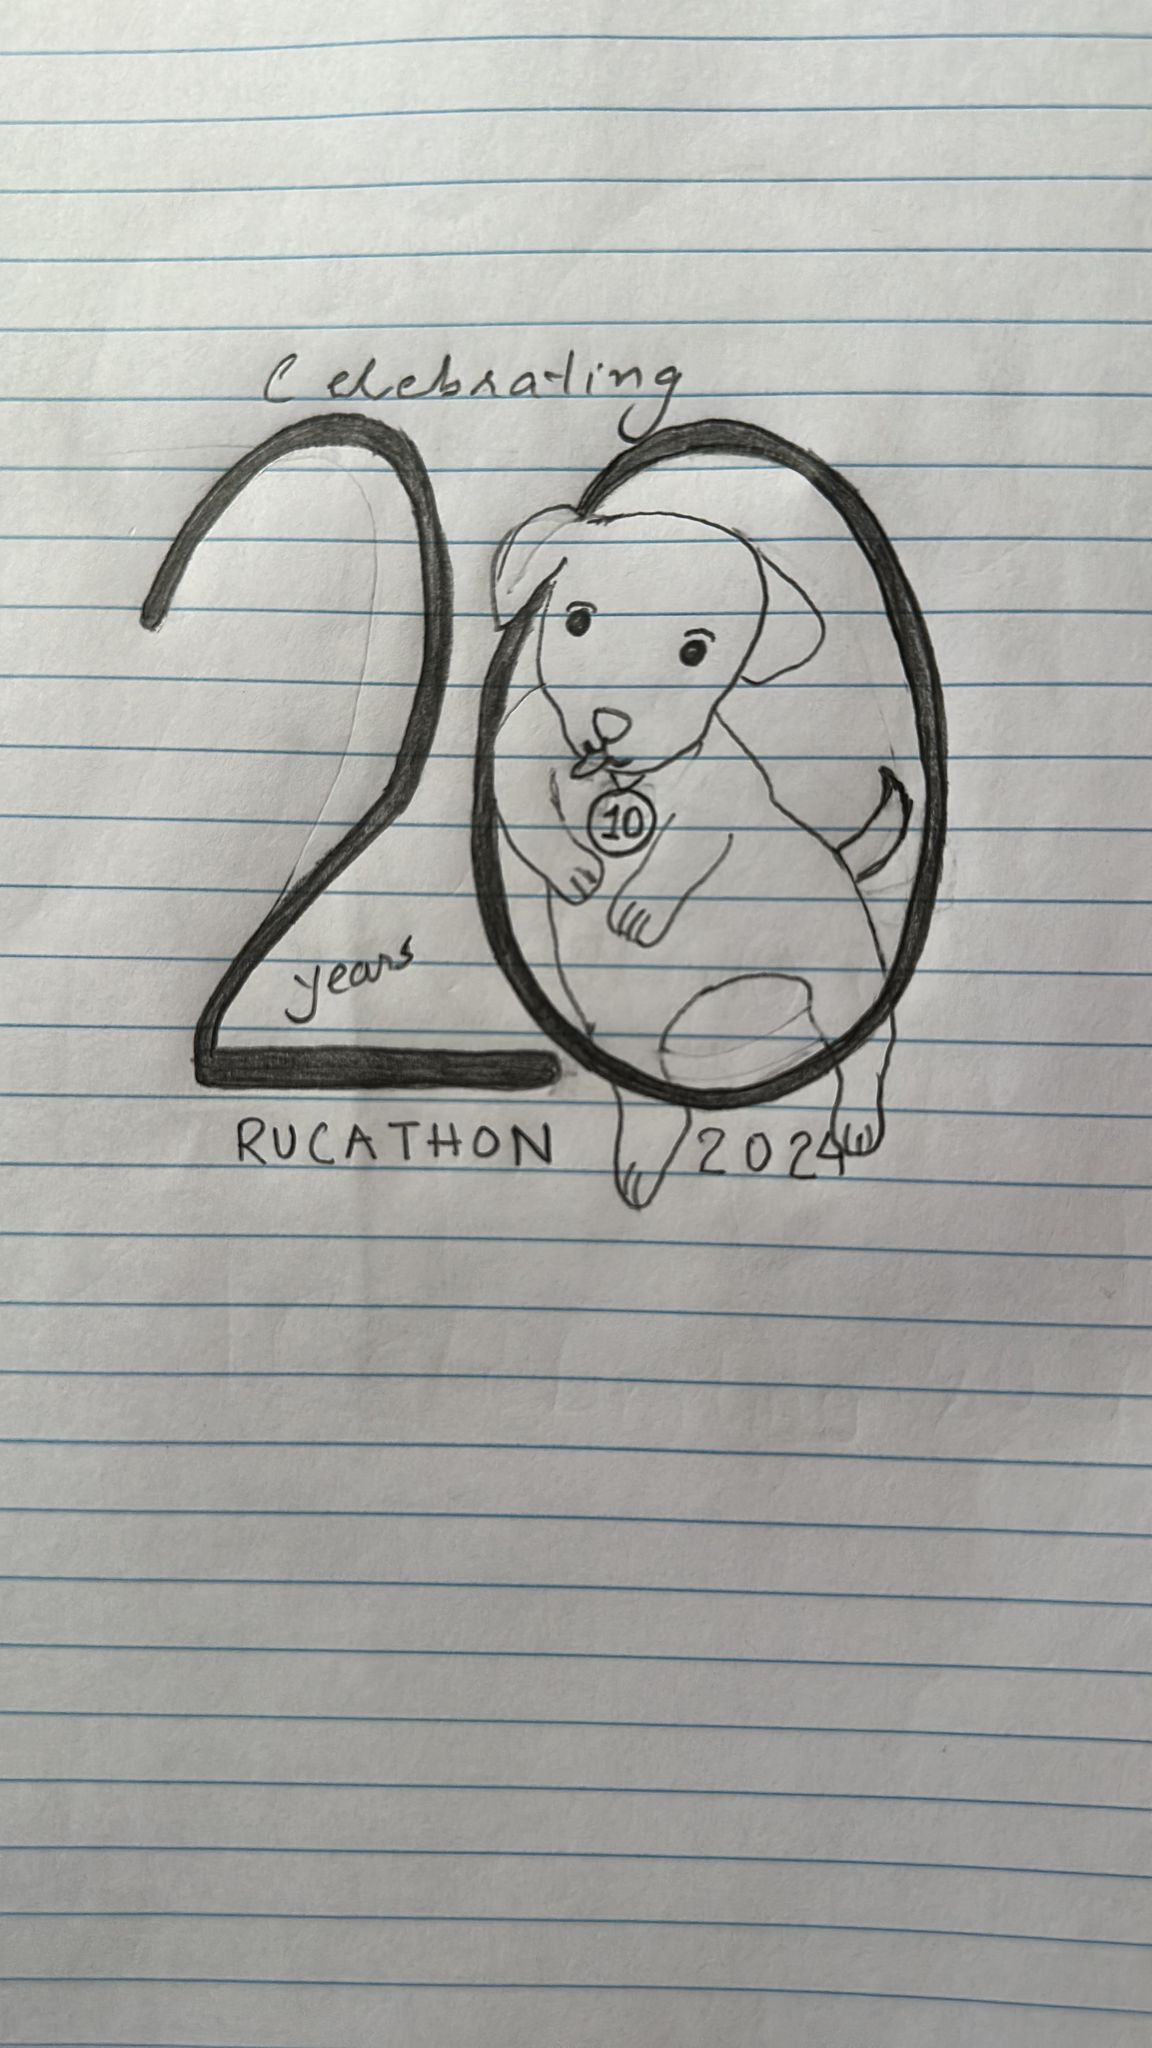 Celebrating
20
10
years
RUCATHON 2024